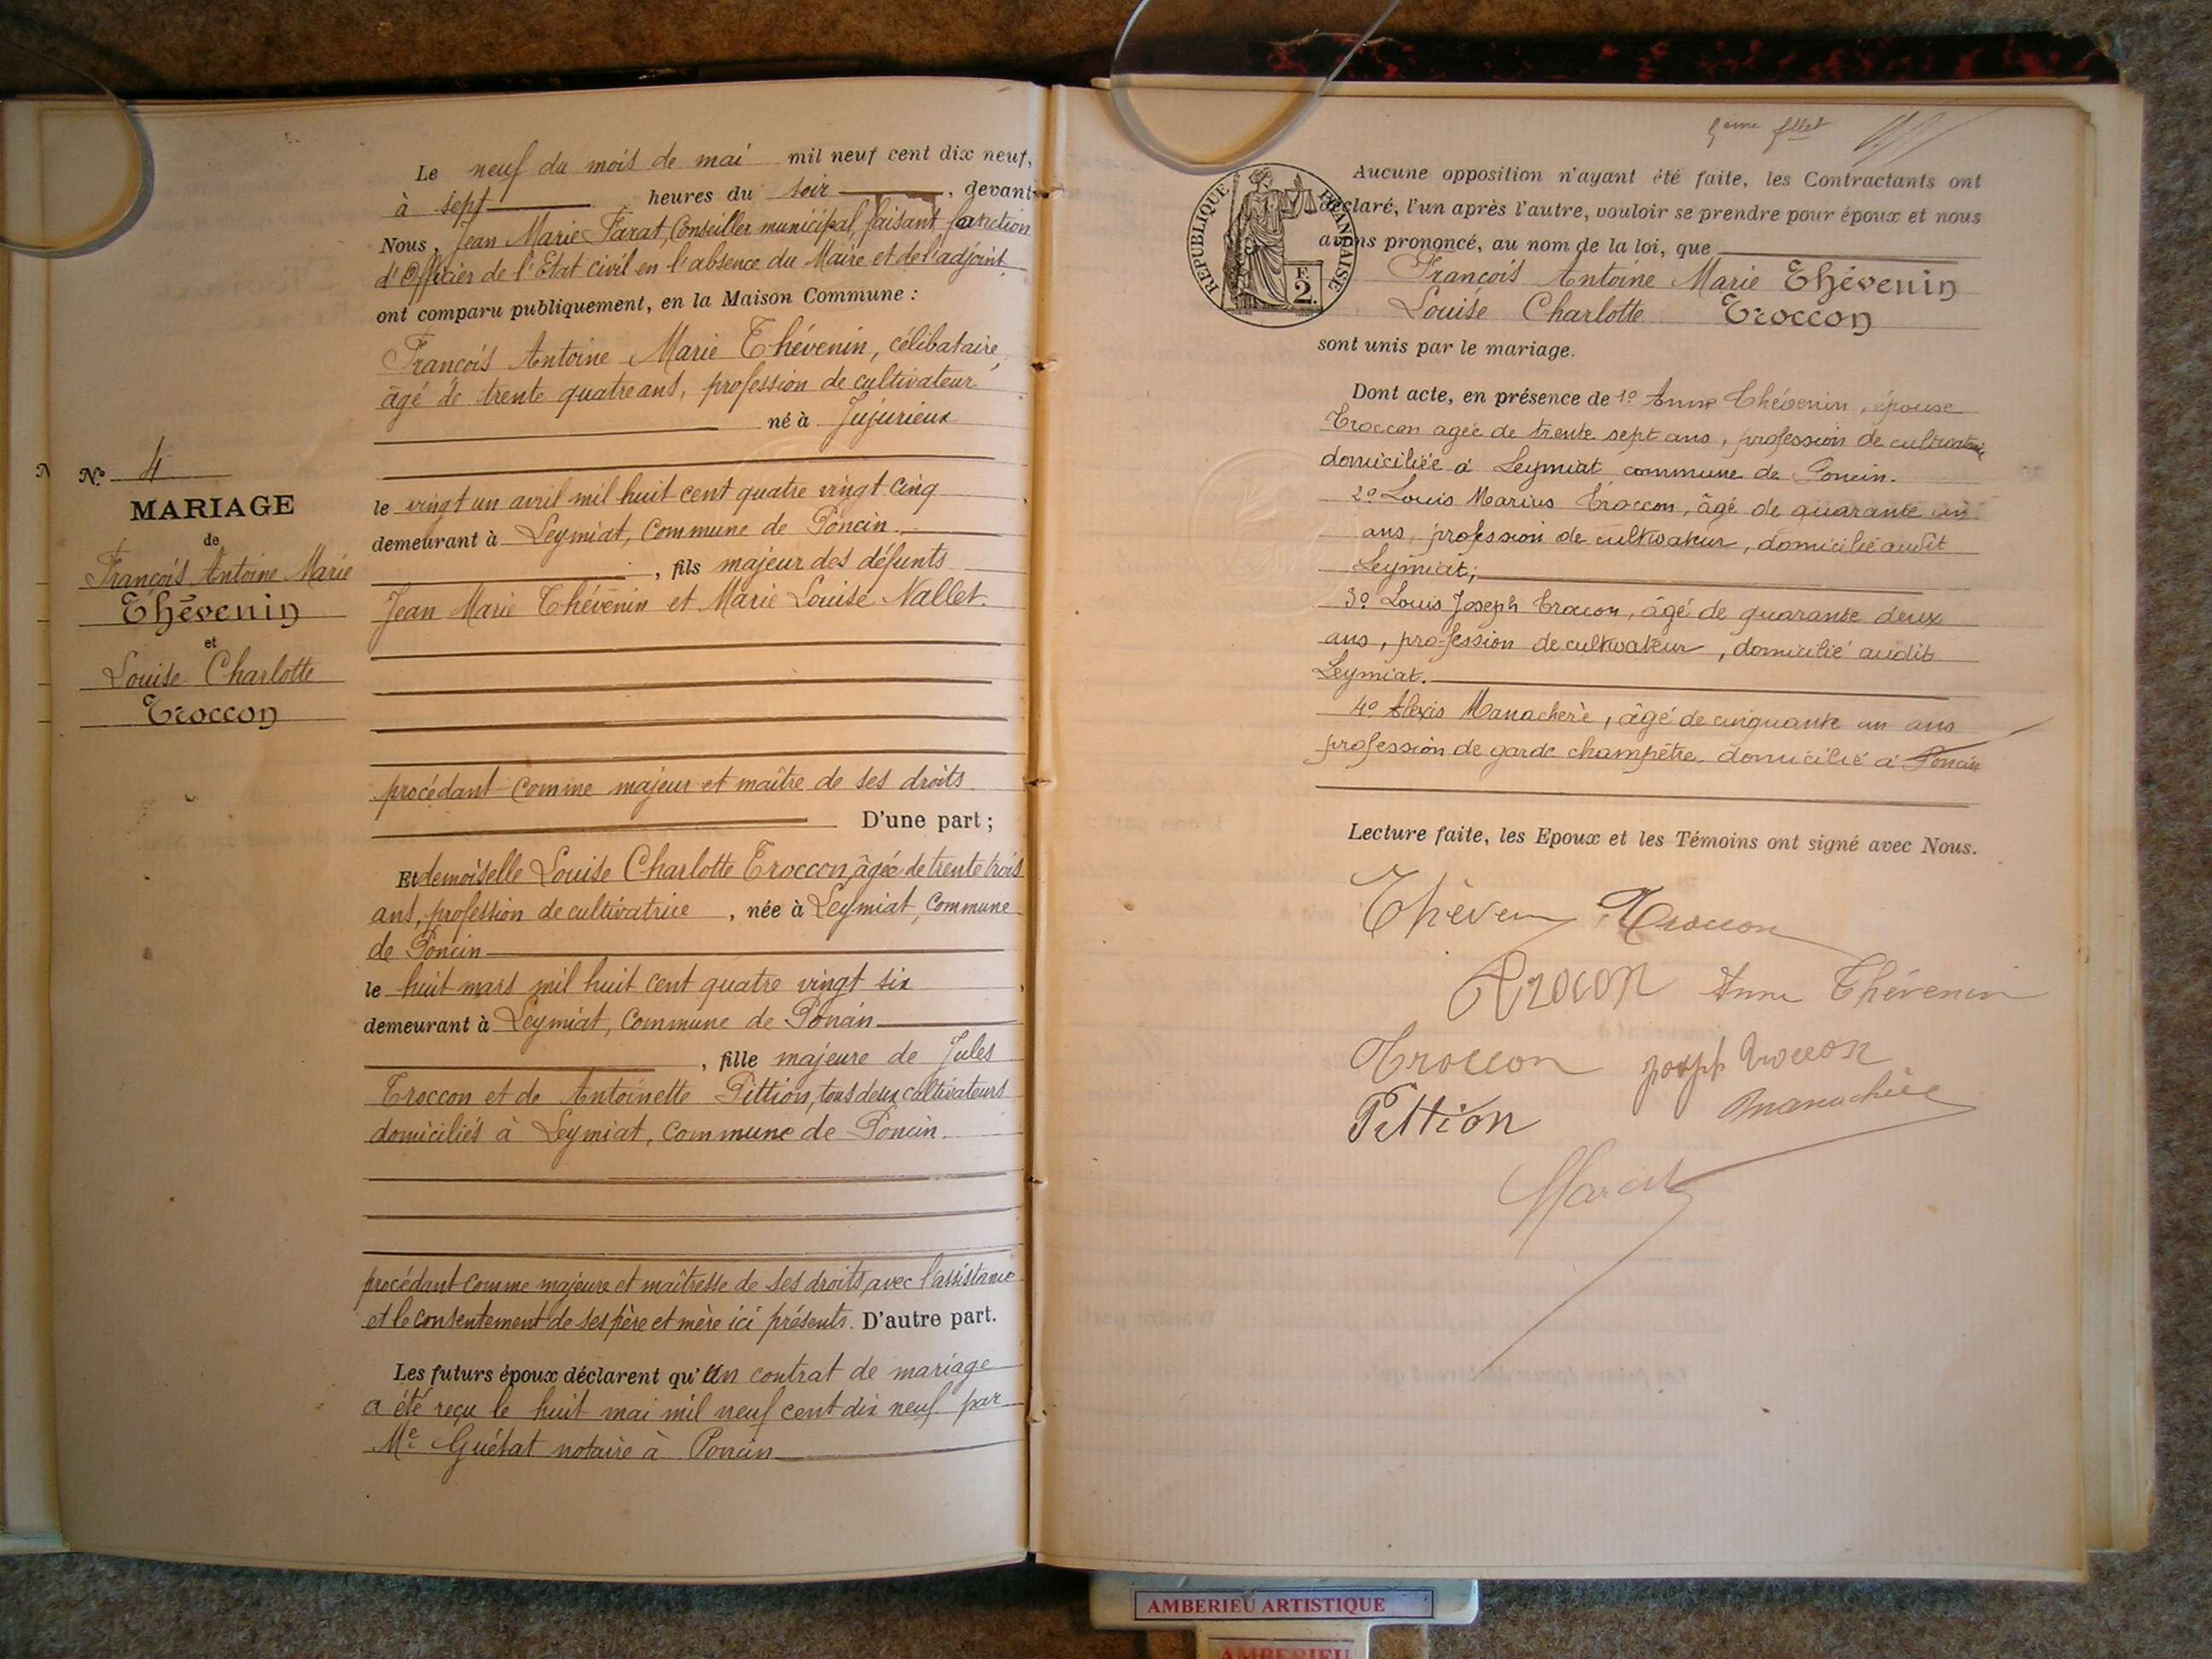 Le neuf du mois de mai mil neuf cent dix neuf,
à sept heures du soir, devant
Nous, Jean Marie Farat, Conseiller municipal, faisant fonction
d'Officier de l'Etat civil en l'absence du Maire et de l'adjoint
ont comparu publiquement, en la Maison Commune :
François Antoine Marie Thévenin, célibataire,
âgé de trente quatre ans, profession de cultivateur
né à Jujurieux
le vingt un avril mil huit cent quatre vingt cinq
demeurant à Leymiat, Commune de Poncin.
, fils majeur des défunts
Jean Marie Thévenin et Marie Louise Nallet.
procédant comme majeur et maître de ses droits
D'une part ;
Et demoiselle Louise Charlotte Troccon, âgée de trente trois
ans, profession de cultivatrice, née à Leymiat, Commune
de Poncin
le huit mars mil huit cent quatre vingt six
demeurant à Leymiat, Commune de Poncin
, fille majeure de Jules
Troccon et de Antoinette Pittion, tous deux cultivateurs
domiciliés à Leymiat, Commune de Poncin.
procédant comme majeure et maîtresse de ses droits, avec l'assistance
et le consentement de ses père et mère ici présents. D'autre part.
Les futurs époux déclarent qu'un contrat de mariage
a été reçu le huit mai mil neuf cent dix neuf par
Me Guétat notaire à Poncin
N° 4
MARIAGE
de
François Antoine Marie
Thévenin
et
Louise Charlotte
Troccon
5eme fllet
RÉPUBLIQUE FRANÇAISE
F. 2.
Aucune opposition n'ayant été faite, les Contractants ont
déclaré, l'un après l'autre, vouloir se prendre pour époux et nous
avons prononcé, au nom de la loi, que
François Antoine Marie Thévenin
Louise Charlotte Troccon
sont unis par le mariage.
Dont acte, en présence de 1° Anne Thévenin, épouse
Troccon agée de trente sept ans, profession de cultivatrice
domiciliée à Leymiat commune de Poncin.
2° Louis Marius Troccon, âgé de quarante un
ans, profession de cultivateur, domicilié audit
Leymiat;
3° Louis Joseph Troccon, âgé de quarante deux
ans, profession de cultivateur, domicilié audit
Leymiat.
4° Alexis Manachère, âgé de cinquante un ans
profession de garde champêtre, domicilié à Poncin
Lecture faite, les Epoux et les Témoins ont signé avec Nous.
Thévenin Troccon
Trocon Anne Thévenin
Troccon Joseph Troccon
Pittion Manachère
AMBERIEU ARTISTIQUE
AMBERIEU